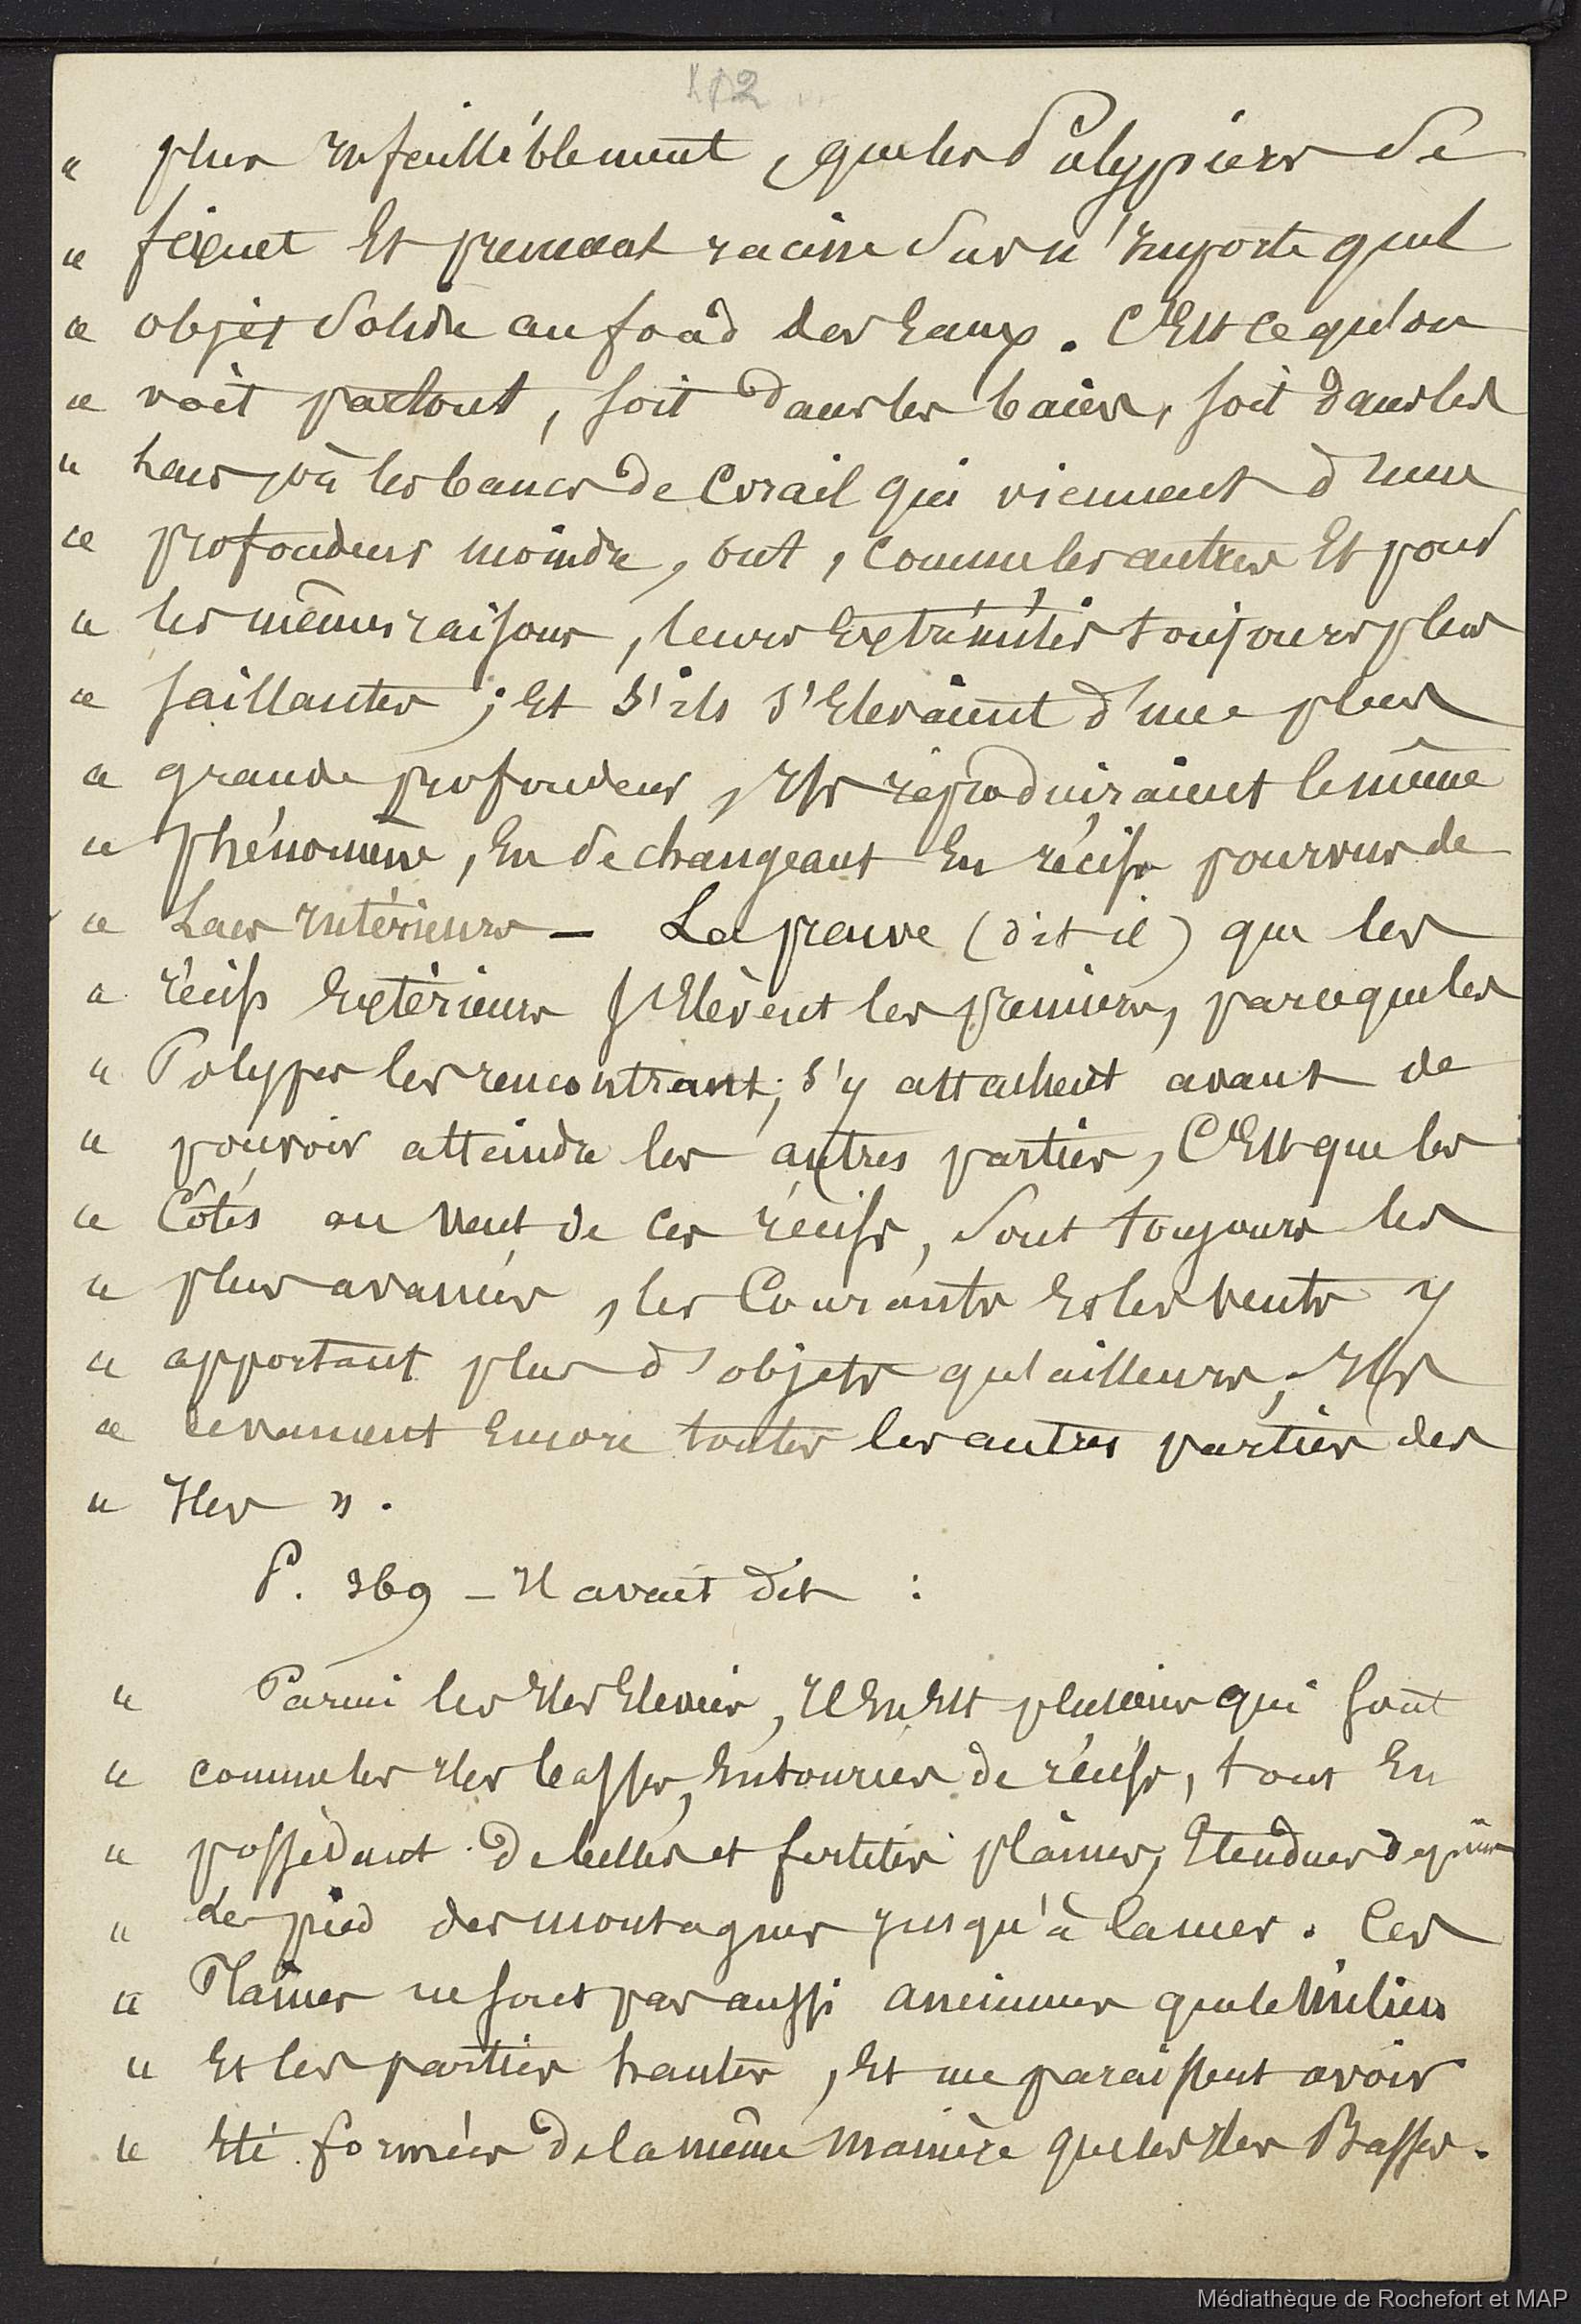 " plus infailliblement, que les Polypiers se
" fixent Et prennent racine Sur n'importe quel
" objet Solide au fond des Eaux. C'Est ce qu'on
" voit partout, soit dans les baies, soit dans les
" où les bancs de Corail qui viennent d'une
" profondeur moindre, ont, comme les autres Et pour
" les mêmes raisons, leurs Extrémités toujours plus
" saillantes ; Et S'ils S'Elevaient d'une plus
" grande profondeur, Ils reproduiraient le même
" Phénomène, En se changeant En récifs pourvus de
" Lacs Intérieurs — La preuve (dit-il) que les
" récifs Extérieurs S'Elèvent les premiers, parceque les
" Polypes les rencontrant, S'y attachent avant de
" pouvoir atteindre les autres parties, C'Est que les
" Côtés au Vent de ces récifs, Sont toujours les
" plus avancés, les Courants Et les vents y
" apportant plus d'objets qu'ailleurs ; Ils
" deviennent Encore toutes les autres parties des
" Iles ".
P. 369 — Il avait dit :
" Parmi les Iles Elevées, Il En Est plusieurs qui sont
" comme les Iles basses, Entourées de récifs, tout En
" possédant de belles et fertiles plaines, Etendues depuis
" Le pied des montagnes jusqu'à la mer. Ces
" Plaines ne sont pas aussi anciennes que le Milieu
" Et les parties hautes, Et me paraissent avoir
" Eté formées de la même manière que les Iles Basses.
Médiathèque de Rochefort et MAP